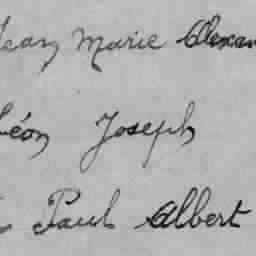 Jean Marie Alexan
Léon Joseph
Paul Albert